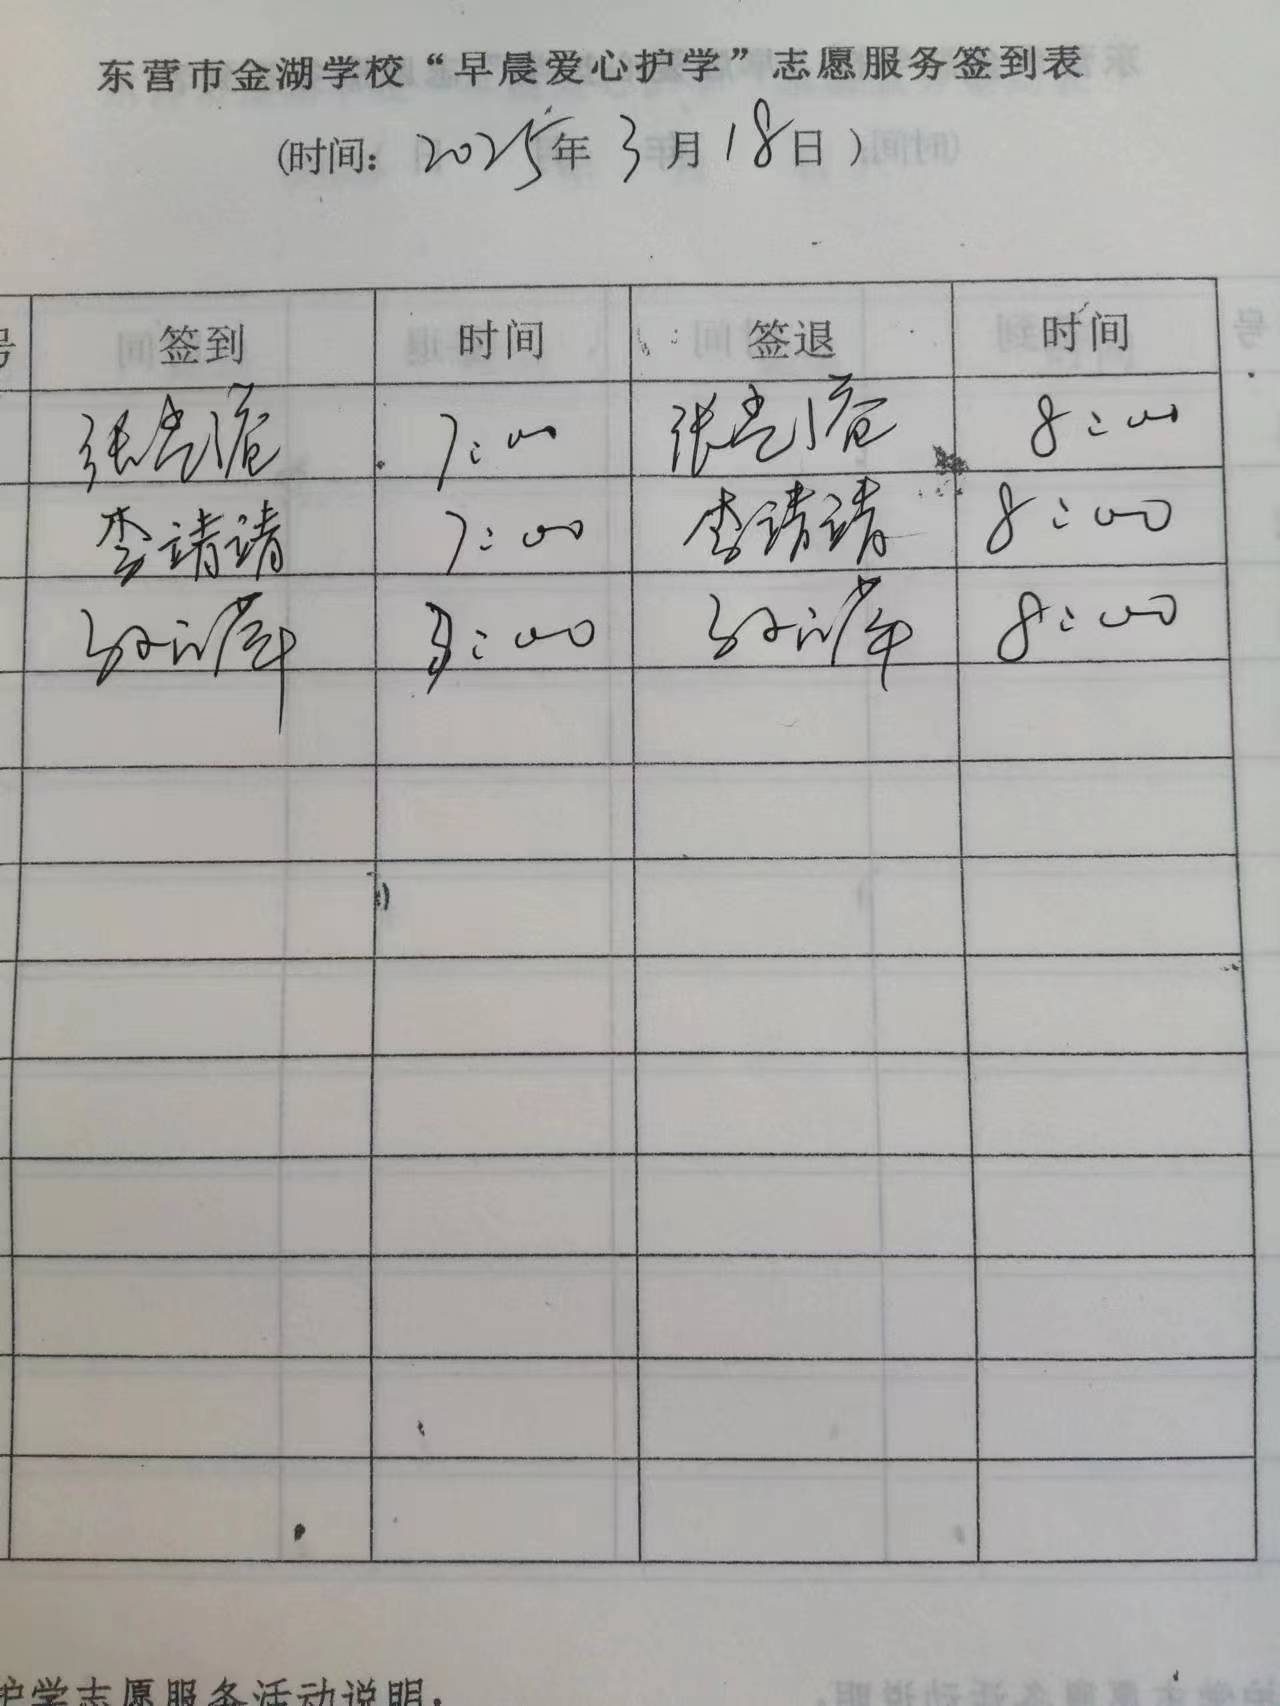 东营市金湖学校“早晨爱心护学”志愿服务签到表
(时间: 2025年 3月 18日)
号 签到 时间 签退 时间
7:00 8:00
李靖靖 7:00 李靖靖 8:00
:00 8:00
护学志愿服务活动说明: